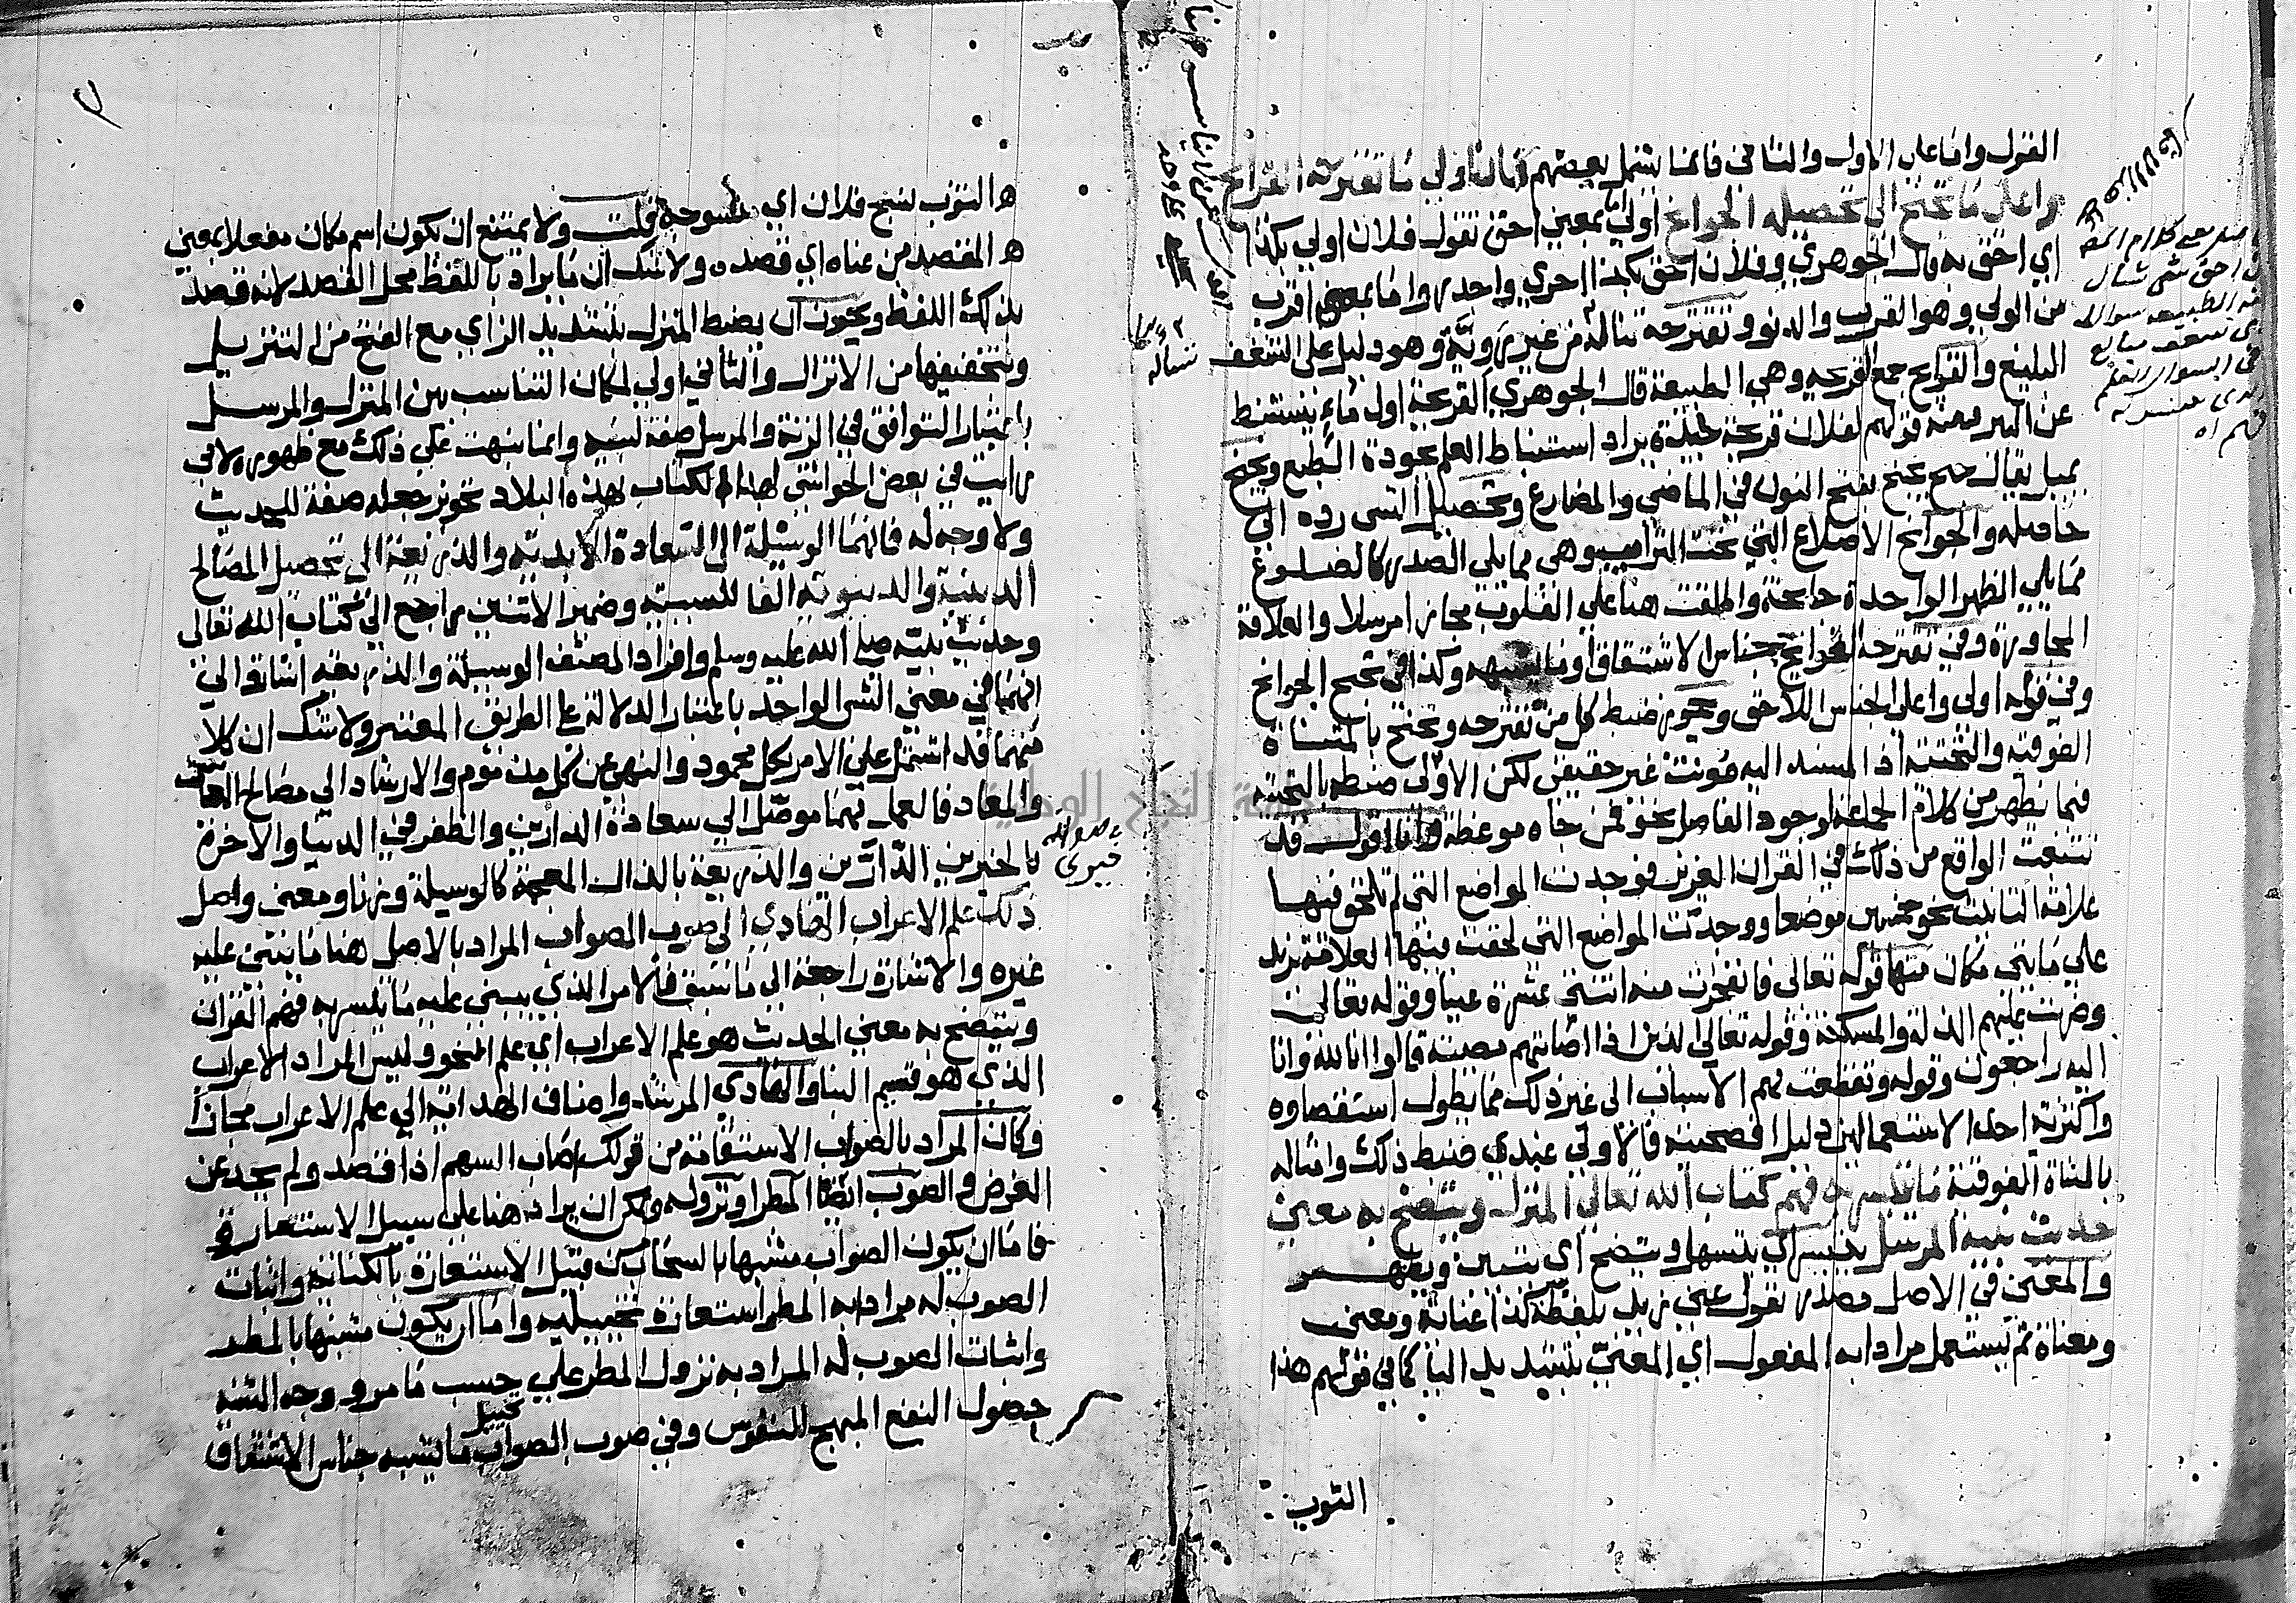 القول واما على الاول والثاني فانما يشمل بعضهم فما اولي ما تقترحه القرائح
واعلى ما تجنح الى تحصيله الجوانح اولى بمعنى احق تقول فلان اولى بكذا
اي احق به قال الجوهري وفلان احق بكذا احرى واجدر واما بمعنى اقرب
من الولي وهو القرب والدنو وتقترحه تناله من غير روية وهو دليل على الشغف
البليغ والقرائح جمع قريحه وهى الطبيعة قال الجوهري القريحة اول ماء يستنبط
عن البير ومنه قولهم لفلان قريحة جيدة يراد استنباط العلم بجودة الطبع وتجنح
تميل يقال جنح يجنح بفتح النون في الماضى والمضارع وتحصيل الشى رده الى
حاصله والجوانح الاضلاع التي تحت الترايب وهى مما يلى الصدر كالضلوع
مما يلي الظهر الواحدة جانحة واطلقت هنا على القلوب مجازا مرسلا والعلاقة
المجاورة وفي تقترحه القرائح جناس الاشتقاق او ما يشبهه وكذا في تجنح الجوانح
وفي قوله اولى واعلى الجناس اللاحق ويجوز ضبط كل من تقترحه وتجنح بالمثناة
الفوقية والتحتية اذ المسند اليه مؤنث غير حقيقى لكن الاولى ضبطه بالتحتية
فيما يظهر من كلام الجماعة لوجود الفاصل نحو فمن جاه موعظة وانا اقول قد
تتبعت الواقع من ذلك في القران العزيز فوجدت المواضع التى لم تلحق فيها
علامة التانيث نحو خمسين موضعا ووجدت المواضع التى لحقت فيها العلامة تزيد
على مايتى مكان منها قوله تعالى فانفجرت منه اثنتى عشرة عينا وقوله تعالى
وضربت عليهم الذلة والمسكنة وقوله تعالى الذين اذا اصابتهم مصيبة قالوا انا لله وانا
اليه راجعون وقوله وتقطعت بهم الاسباب الى غير ذلك مما يطول استقصاوه
واكثرية احد الاستعمالين دليل افصحيته فالاولى عندي ضبط ذلك وامثاله
بالمثناة الفوقية ما يتيسر به فهم كتاب الله تعالى المنزل ويتضح به معنى
حديث نبيه المرسل يتيسر اي يتسهل ويتضح اي يتبين ويظهر
والمعنى في الاصل مصدر تقول عنى زيد بلفظه كذا عناية ومعنى
ومعناة ثم يستعمل مرادا به المفعول اي المعنيّ بتشديد اليا كما في قولهم هذا
الثوب
ه الثوب نسج فلان اي منسوجه قلت ولا يمتنع ان يكون اسم مكان مفعلا بمعنى
ه المقصد من عناه اي قصده ولا شك ان ما يراد باللفظ محل القصد لانه قصد
بذلك اللفظ ويجوز ان يضبط المنزل بتشديد الزاي مع الفتح من التنزيل
وبتخفيفها من الانزال والثاني اولى لمكان التناسب بين المنزل والمرسل
باعتبار التوافق في الزنة والمرسل صفة لنبيه وانما نبهت على ذلك مع ظهوره لانى
رايت في بعض الحواشى لهذا الكتاب بهذه البلاد تجويز جعله صفة للحديث
ولا وجه له فانهما الوسيلة الى السعادة الابدية والذريعة الى تحصيل المصالح
الدينية والدنيوية الفا للسببية وضمير الاثنين راجع الى كتاب الله تعالى
وحديث نبيه صلى الله عليه وسلم وافراد المصنف الوسيلة والذريعة اشارة الى
انهما في معنى الشى الواحد باعتبار الدلالة على الطريق المعتبر ولا شك ان كلا
منهما قد اشتمل على الامر بكل محمود والنهى عن كل مذموم والارشاد الى مصالح المعاش
والمعاد فالعمل بهما موصل الى سعادة الدارين والظفر في الدنيا والاخرة
بالخيرين الدارين والذريعة بالذال المعجمة كالوسيلة وزنا ومعنى واصل
ذلك علم الاعراب الهادي الى صوب الصواب المراد بالاصل هنا ما يبتنى عليه
غيره والاشارة راجعة الى ما سبق فالامر الذي يبتنى عليه ما تيسر به فهم القران
ويتضح به معنى الحديث هو علم الاعراب اي علم النحو وليس المراد الاعراب
الذي هو قسيم البنا والهادي المرشد واضاف الهداية الى علم الاعراب مجازا
وكان المراد بالصواب الاستقامة من قولك اصاب السهم اذا قصد ولم يحد عن
الغرض والصوب ايضا المطر او نزوله ويمكن ان يراد هنا على سبيل الاستعارة
فاما ان يكون الصواب مشبها بالسحاب من قبيل الاستعارة بالكناية واثبات
الصوب له مرادا به المطر استعارة تخييلية واما ان يكون مشبها بالمطر
واثبات الصوب له المراد به نزول المطر على حسب ما مر ووجه الشبه
حصول النفع المبهج للنفوس وفي صوب الصواب ما يشبه جناس الاشتقاق